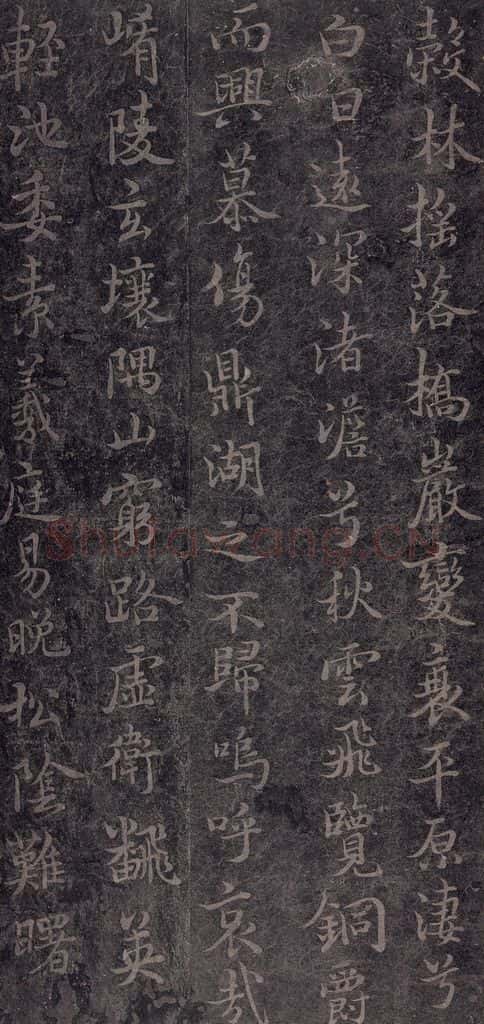 穀林搖落橋巖變衰平原淒兮
白日遠深渚澹兮秋雲飛覽銅爵
而興慕傷鼎湖之不歸嗚呼哀哉
崤陵玄壤隅山窮路虛衛飜英
輊池委素羲庭易晚松陰難曙
Shufawang.CN